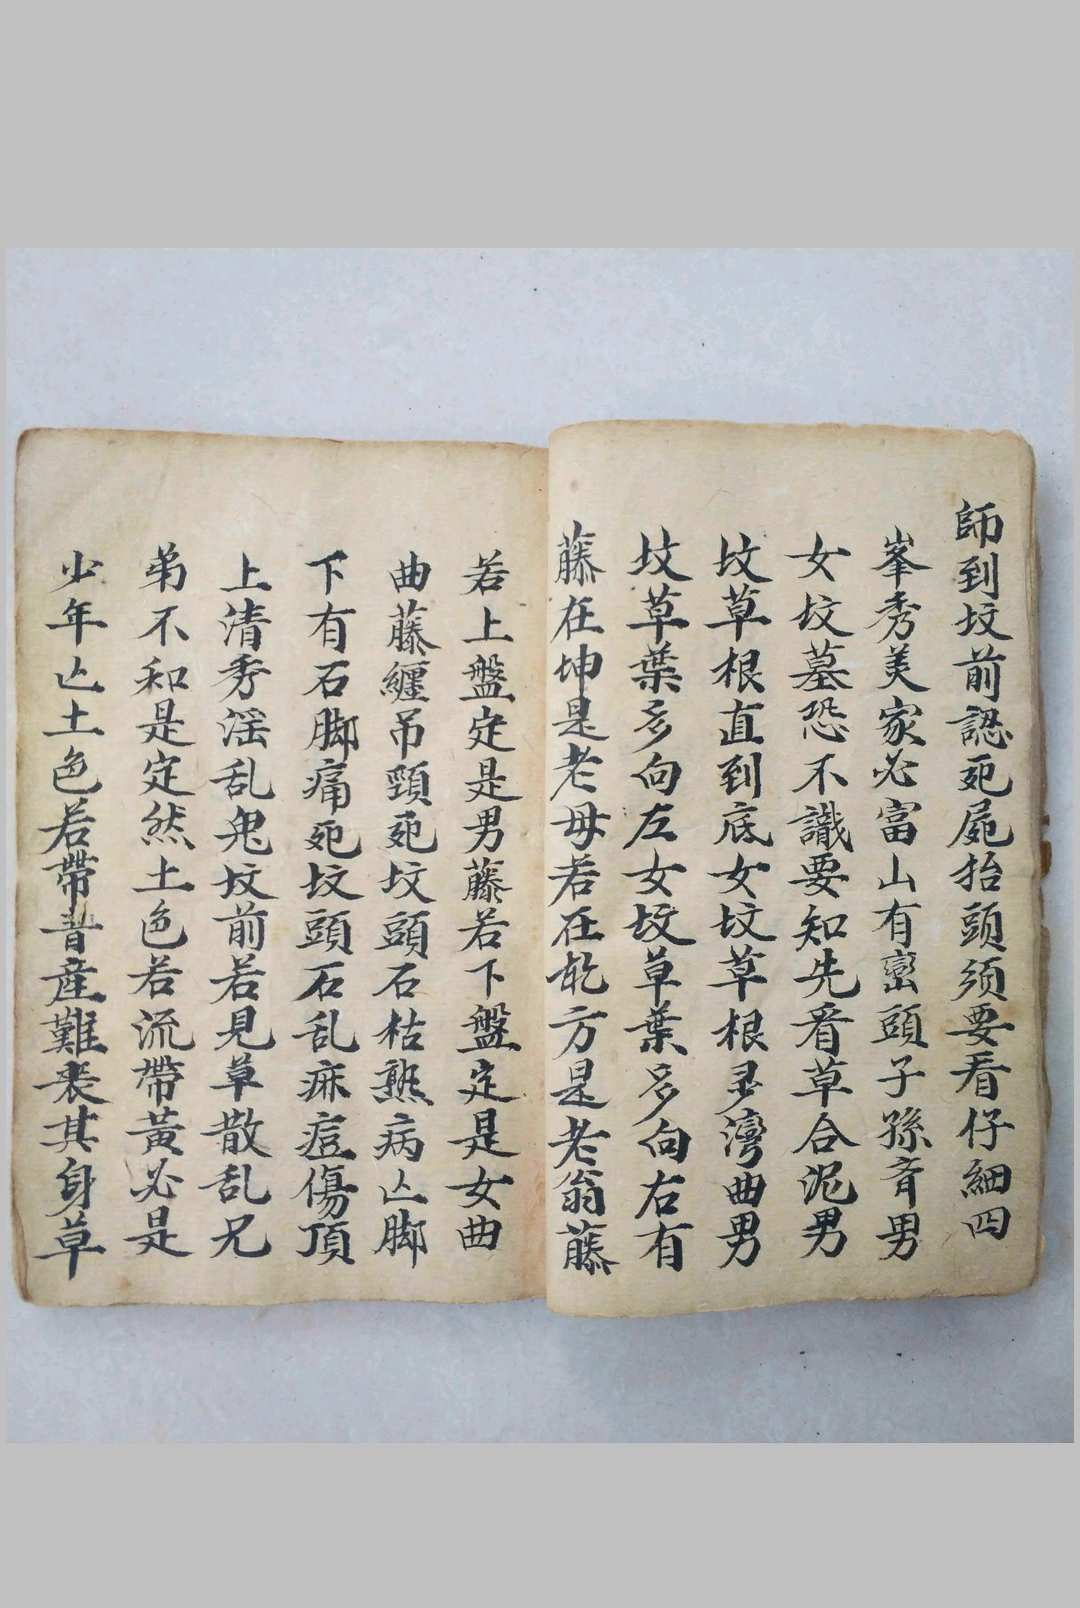 師到坟前認死屍抬頭须要看仔細四
峯秀美家必富山有巒頭子孫斉男
女坟墓恐不識要知先看草合泥男
坟草根直到底女坟草根多灣曲男
坟草葉多向左女坟草葉多向右有
藤在坤是老母若在乾方是老翁藤
若上盤定是男藤若下盤定是女曲
曲藤纏吊頸死坟頭石枯熟病亡脚
下有石脚痛死坟頭石乱麻痘傷頂
上清秀滛乱鬼坟前若見草散乱兄
弟不和是定然土色若流帶黃必是
少年亡土色若帶青産難喪其身草